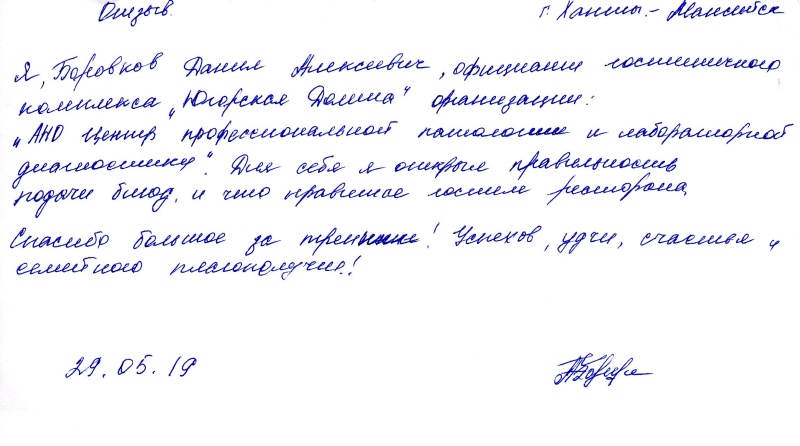 Отзыв. г. Ханты-Мансийск
Я, Боровков Данил Алексеевич, официант гостиничного
комплекса "Югорская Долина" организации:
"АНО Центр профессиональной патологии и лабораторной
диагностики". Для себя я открыл правильность
подачи блюд, и что нравится гостям ресторана.
Спасибо большое за тренинг! Успехов, удчи, счастья и
семейного благополучия!
29.05.19